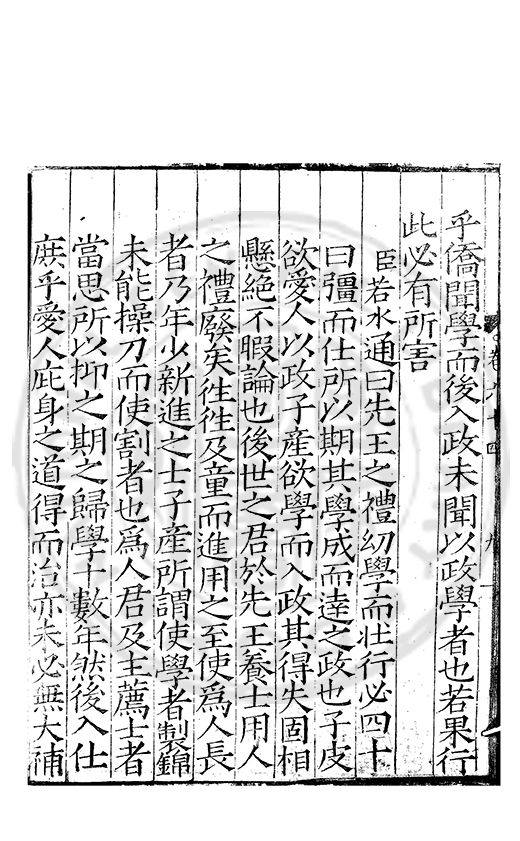 乎僑聞學而後入政未聞以政學者也若果行
此必有所害
臣若水通曰先王之禮幼學而壯行必四十
曰彊而仕所以期其學成而達之政也子皮
欲愛人以政子產欲學而入政其得失固相
懸絕不暇論也後世之君於先王養士用人
之禮廢矣徃徃及童而進用之至使爲人長
者乃年少新進之士子產所謂使學者製錦
未能操刀而使割者也爲人君及主薦士者
當思所以抑之期之歸學十數年然後入仕
庶乎愛人庇身之道得而治亦未必無大補